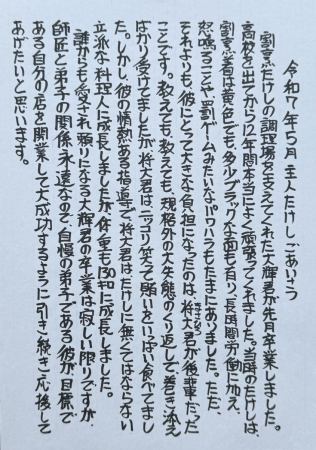 令和7年5月 主人たけしごあいさつ
割烹たけしの調理場を支えてくれた大輝君が先月卒業しました。
高校を出てから12年間本当によく頑張ってくれました。当時のたけしは、
割烹着は黄色でも、多少ブラックな面も有り、長時間労働に加え、
怒鳴ることや罰ゲームみたいなパワハラもたまにありました。ただ、
それよりも、彼にとって大きな負担になったのは、将大君が後輩だった
ことです。教えても、教えても、規格外の大失態のくり返しで、巻き添え
ばかり受けてましたが、将大君は、ニッコリ笑って賄いをいっぱい食べてまし
た。しかし、彼の情熱ある指導で、将大君は、たけしに無くてはならない
立派な料理人に成長しましたが、体重も130kgに成長しました。
誰からも愛され、頼りになる大輝君の卒業は寂しい限りですが、
師匠と弟子の関係は永遠なので、自慢の弟子である彼が目標で
ある自分の店を開業して大成功するように引き続き応援して
あげたいと思います。